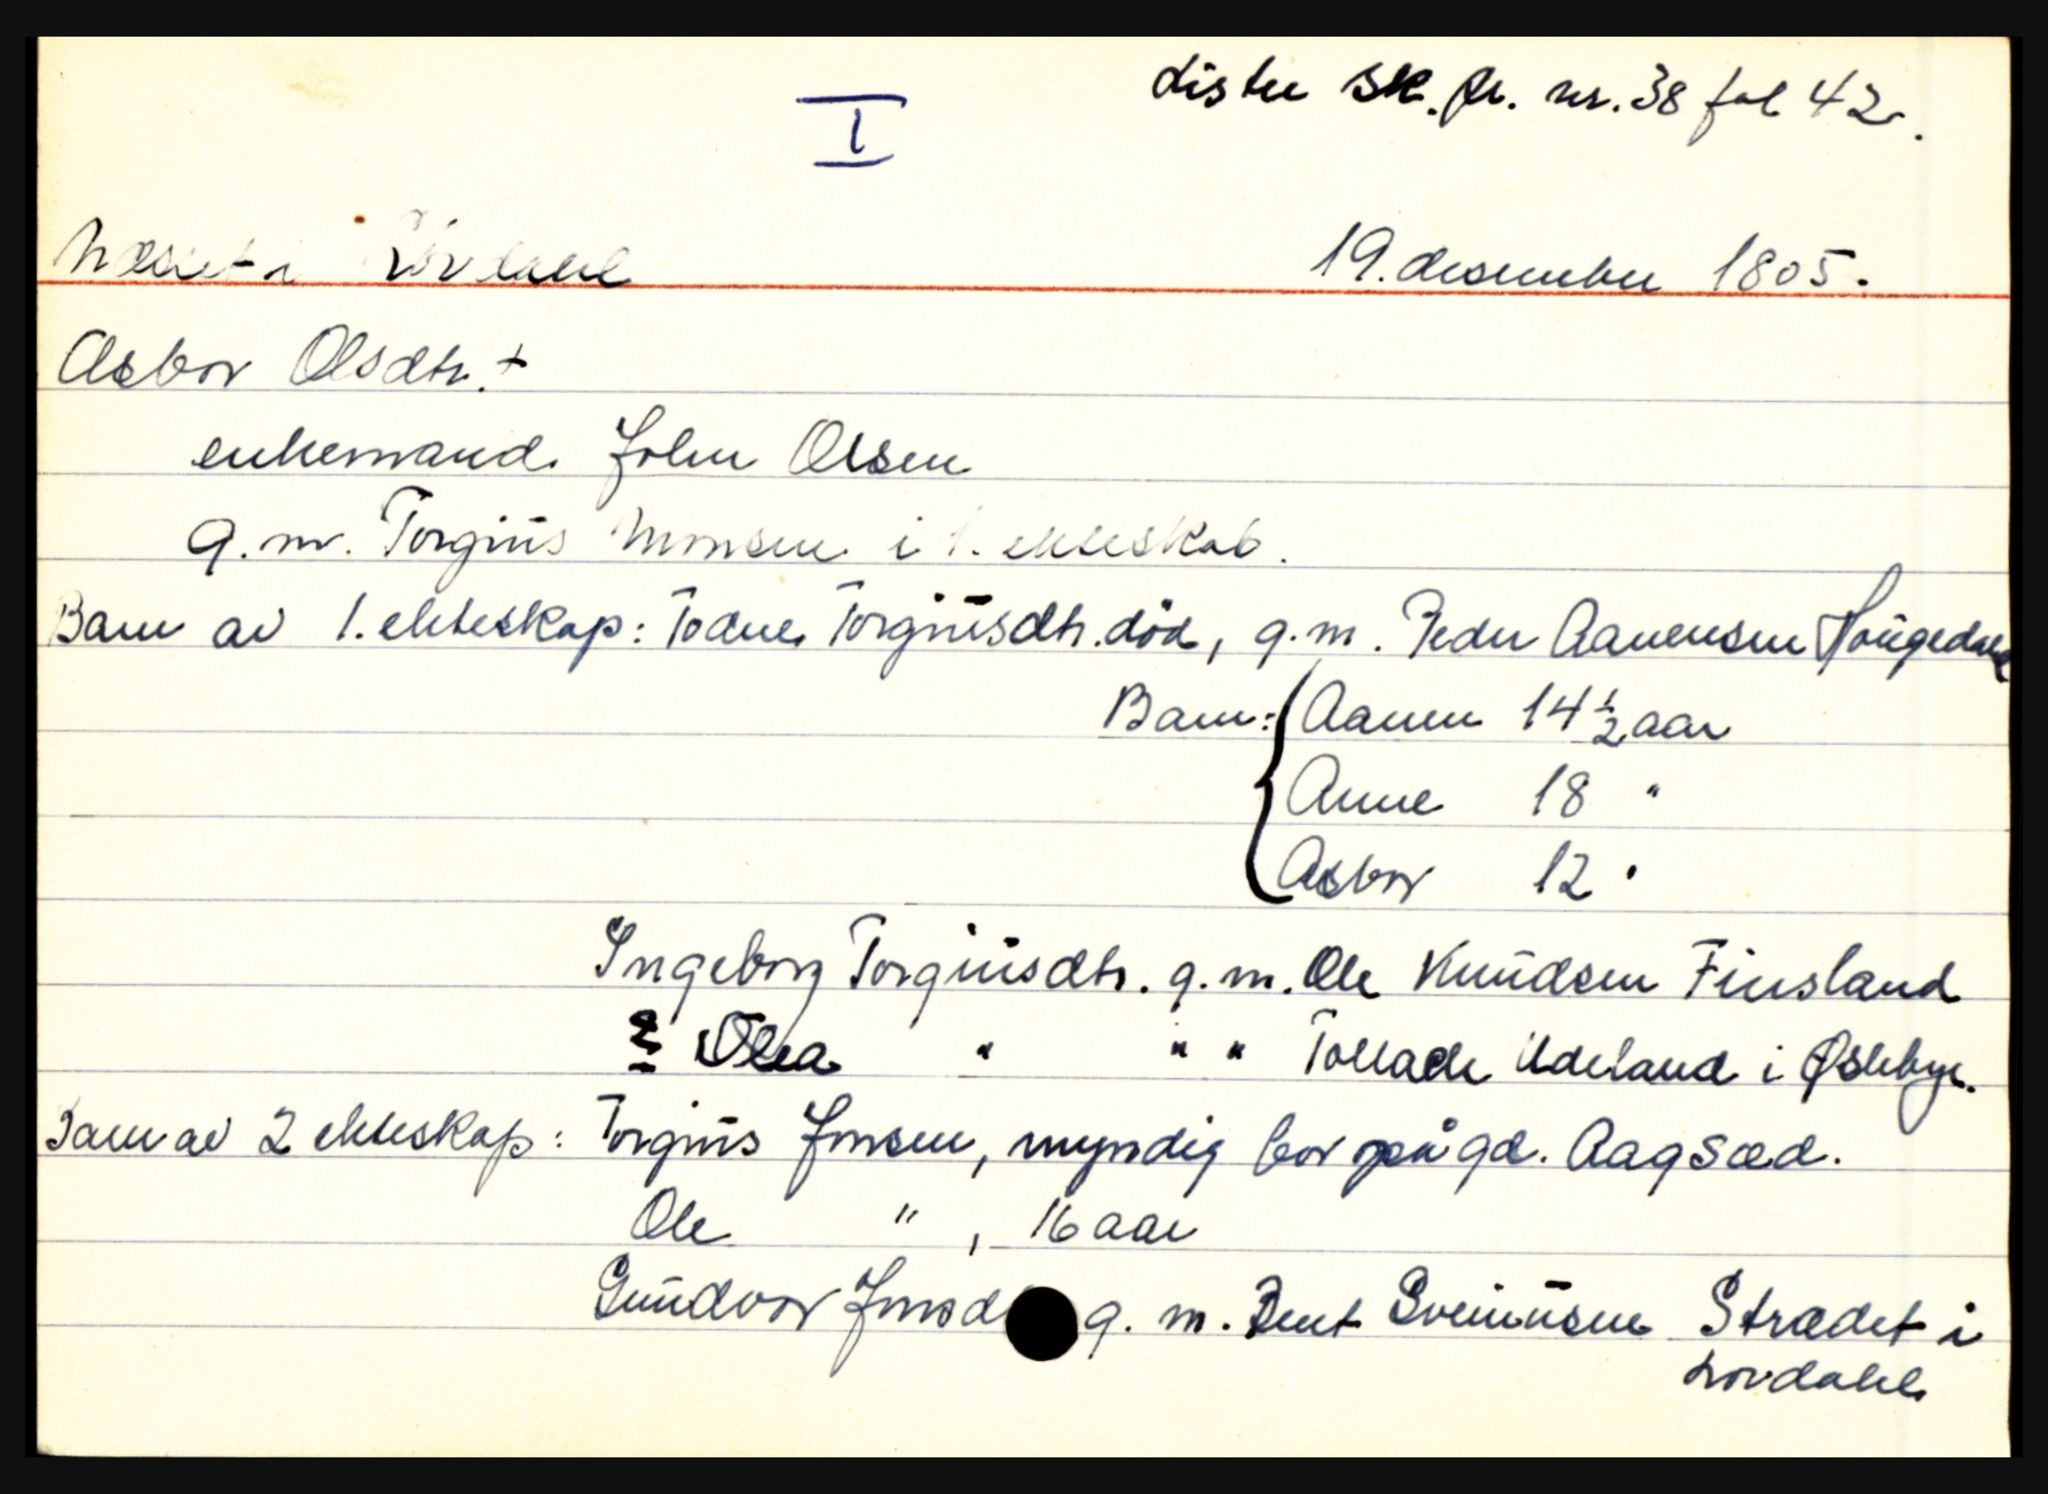 Lister sk. pr. nr. 38 fol 42.
I
Næset i Lövdahl 19. desember 1805.
Asbor Olsdtr. +
enkemand. John Olsen
g. m. Torgius Monsen i 1. ekteskab.
Barn av 1. ekteskap: Todne Torgiusdtr. död, g. m. Peder Aanensen Haugedahl
Barn: Aanen 14 1/2 aar
Anne 18 "
Asbor 12 "
Ingeborg Torgiusdtr. g. m. Ole Knudsen Finsland
Thea " " " Tollack Udeland i Øslebye.
Barn av 2 ekteskap: Torgius Jonsen, myndig bor på gd. Aagsæd.
Ole " , 16 aar
Gundvor Jonsd g. m. Bent Sveinusen Strædet i
Lovdahl